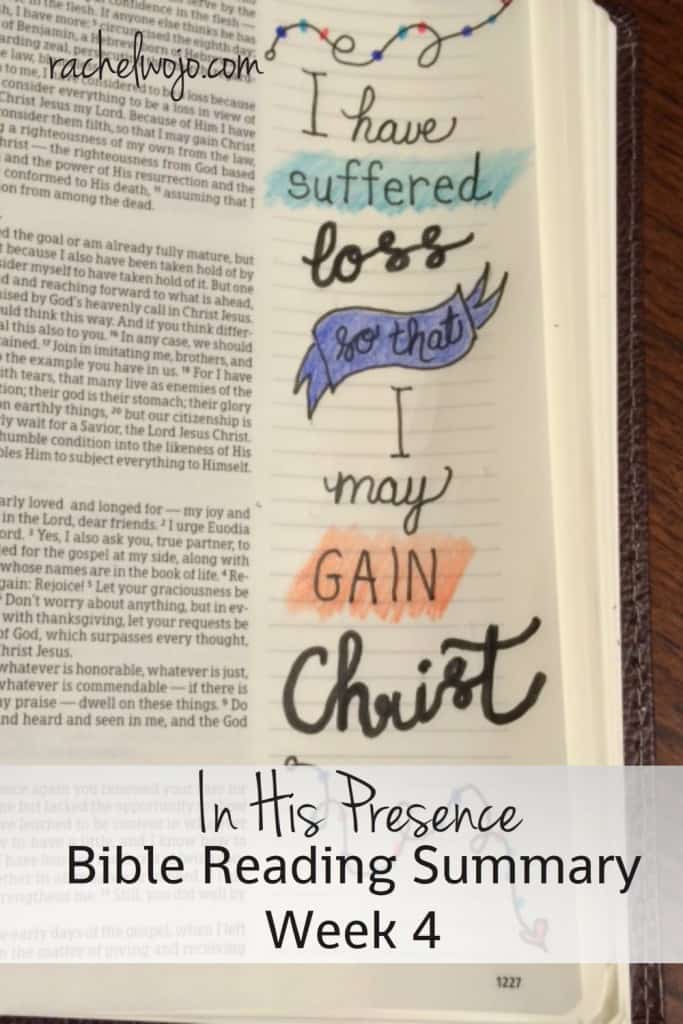 rachelwojo.com
in the flesh. If anyone else thinks he has
of Benjamin, a Hebrew born of Hebrew
consider everything to be a loss in view of
Christ Jesus my Lord. Because of Him I have
consider them filth, so that I may gain Christ
a righteousness of my own from the law,
the righteousness from God based
and the power of His resurrection and the
conformed to His death, 11 assuming that I
from among the dead.
the goal or am already fully mature, but
because I also have been taken hold of by
myself to have taken hold of it. But one
and reaching forward to what is ahead,
by God's heavenly call in Christ Jesus.
think this way. And if you think differ-
this also to you. 16 In any case, we should
17 Join in imitating me, brothers, and
the example you have in us. 18 For I have
tears, that many live as enemies of the
their god is their stomach; their glory
earthly things, 20 but our citizenship is
wait for a Savior, the Lord Jesus Christ.
humble condition into the likeness of His
Him to subject everything to Himself.
loved and longed for — my joy and
in the Lord, dear friends. 2 I urge Euodia
3 Yes, I also ask you, true partner, to
for the gospel at my side, along with
whose names are in the book of life. 4 Re-
Rejoice! 5 Let your graciousness be
Don't worry about anything, but in ev-
with thanksgiving, let your requests be
of God, which surpasses every thought,
Christ Jesus.
whatever is honorable, whatever is just,
whatever is commendable — if there is
praise — dwell on these things. 9 Do
and heard and seen in me, and the God
I have
suffered
loss
so that
I
may
GAIN
Christ
In His Presence
Bible Reading Summary
Week 4
early days of the gospel, when I left
the matter of giving and receiving
1227